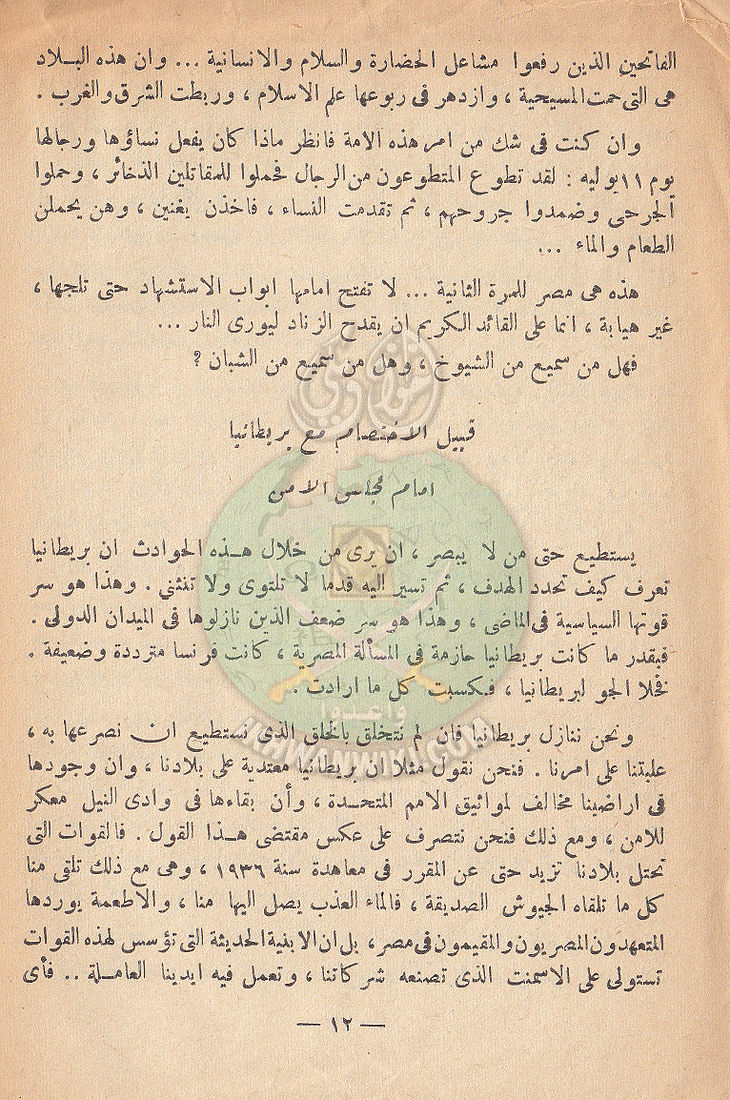 الفاتحين الذين رفعوا مشاعل الحضارة والسلام والانسانية ... وان هذه البلاد
هى التى حمت المسيحية ، وازدهر فى ربوعها علم الاسلام ، وربطت الشرق والغرب .
وان كنت فى شك من امر هذه الامة فانظر ماذا كان يفعل نساؤها ورجالها
يوم ١١ يوليه : لقد تطوع المتطوعون من الرجال فحملوا للمقاتلين الذخائر ، وحملوا
الجرحى وضمدوا جروحهم ، ثم تقدمت النساء ، فاخذن يغنين ، وهن يحملن
الطعام والماء ...
هذه هى مصر للمرة الثانية ... لا تفتح امامها ابواب الاستشهاد حتى تلجها ،
غير هيابة ، انما على القائد الكريم ان يقدح الزناد ليورى النار ...
فهل من سميع من الشيوخ ، وهل من سميع من الشبان ؟
قبيل الاختصام مع بريطانيا
امام مجلس الامن
يستطيع حتى من لا يبصر ، ان يرى من خلال هذه الحوادث ان بريطانيا
تعرف كيف تحدد الهدف ، ثم تسير اليه قدما لا تلتوى ولا تنثنى . وهذا هو سر
قوتها السياسية فى الماضى ، وهذا هو سر ضعف الذين نازلوها فى الميدان الدولى .
فبقدر ما كانت بريطانيا حازمة فى المسألة المصرية ، كانت فرنسا مترددة وضعيفة .
فخلا الجو لبريطانيا ، فكسبت كل ما ارادت .
ونحن ننازل بريطانيا فان لم نتخلق بالخلق الذى نستطيع ان نصرعها به ،
غلبتنا على امرنا . فنحن نقول مثلا ان بريطانيا معتدية على بلادنا ، وان وجودها
فى اراضينا مخالف لمواثيق الامم المتحدة ، وأن بقاءها فى وادى النيل معكر
للامن ، ومع ذلك فنحن نتصرف على عكس مقتضى هذا القول . فالقوات التى
تحتل بلادنا تزيد حتى عن المقرر فى معاهدة سنة ١٩٣٦ ، وهى مع ذلك تلقى منا
كل ما تلقاه الجيوش الصديقة ، فالماء العذب يصل اليها منا ، والاطعمة يوردها
المتعهدون المصريون والمقيمون فى مصر ، بل ان الابنية الحديثة التى تؤسس لهذه القوات
تستولى على الاسمنت الذى تصنعه شركاتنا ، وتعمل فيه ايدينا العاملة .. فأى
— ١٢ —
وأعدوا
IKHWANWIKI.COM